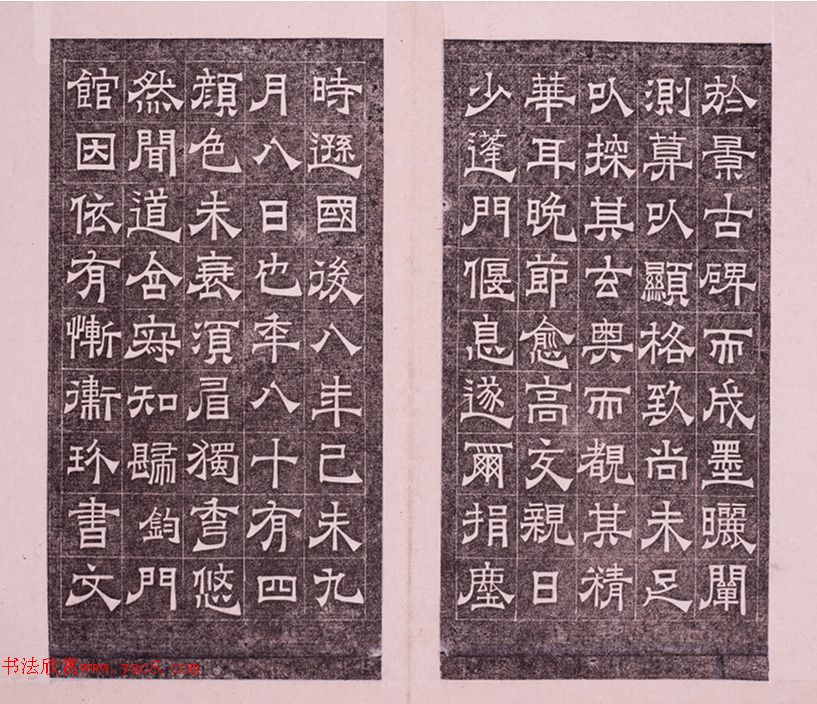 於景古碑而成墨曬闡
測算㕥顯格致尚未足
㕥探其玄奥而覩其精
華耳晚節愈高交親日
少蓬門偃息遂爾捐塵
時遜國後八年己未九
月八日也年八十有四
顔色未衰須眉獨秀悠
然聞道含䆪知歸鈞門
館因依有慚衛玠書文
书法欣赏www.yac8.com